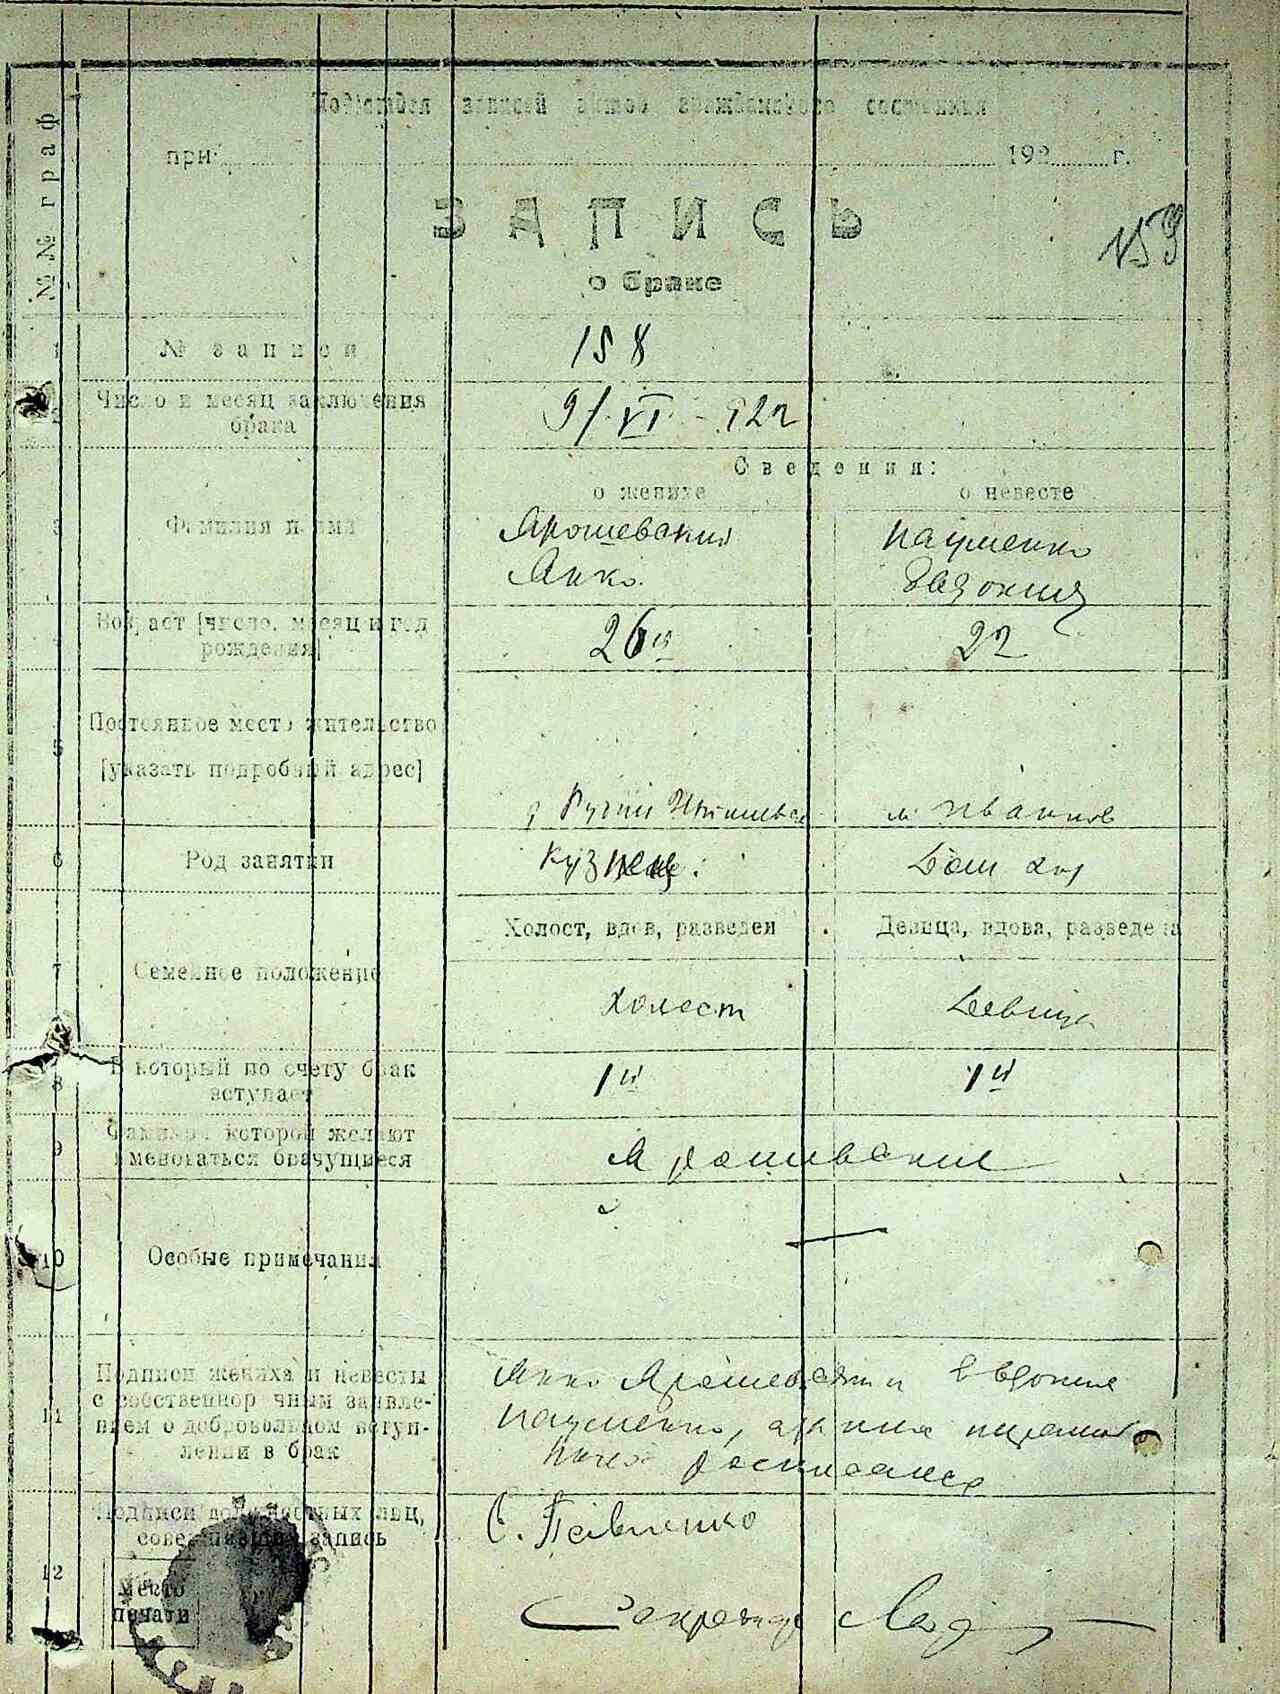 №№ граф
Подотдел записей актов гражданского состояния
при 192 г.
ЗАПИСЬ
159
о браке
1 № записи 158
2 Число и месяц заключения брака 9/VI - 922
Сведения:
о женихе о невесте
3 Фамилия и имя Ярошевский Науменко
Янко Евдокия
Возраст [число, месяц и год рождения] 26 22
5 Постоянное место жительство
[указать подробный адрес]
6 Род занятии Кузнец
Холост, вдов, разведен Девица, вдова, разведена
7 Семейное положение
Холост Девица
8 В который по счету брак вступает 1й 1й
9 Фамилия, которой желают именоваться брачущиеся Ярошевские
10 Особые примечания
11 Подписи жениха и невесты Янко Ярошевский Евдокия
с собственноручным заявле- Науменко,
нием о добровольном вступ-
лении в брак
Подписи должностных лиц, С. Павленко
совершивших запись
12
место Секретарь
печати